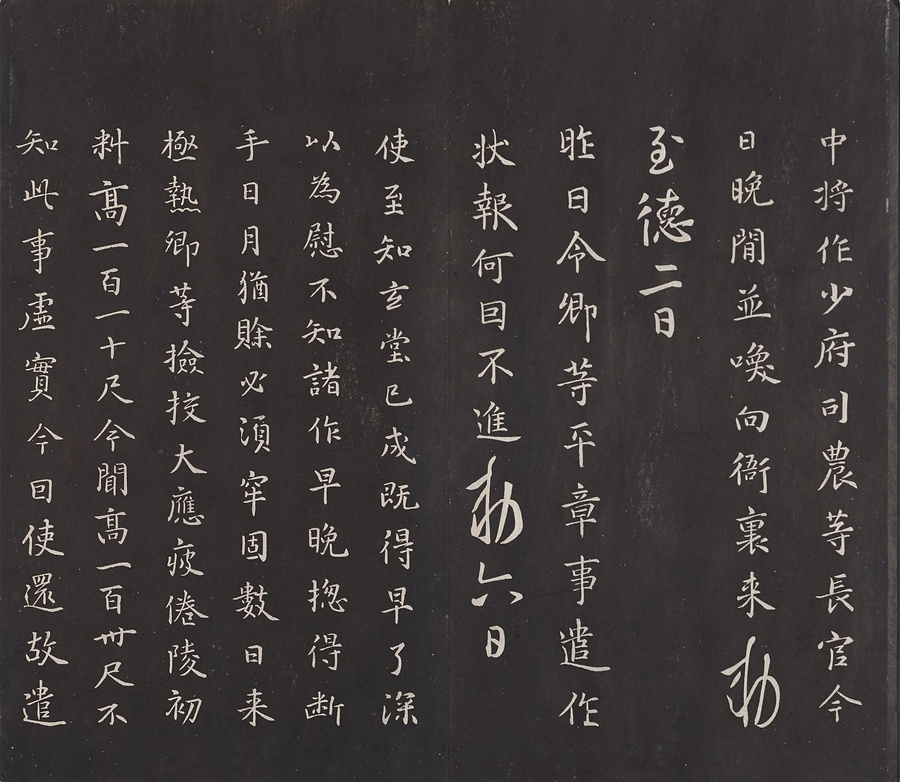 中将作少府司農等長官今
日晚間並喚向衙裏来勅
至德二日
昨日令卿等平章事遣作
状報何因不進勅六日
使至知玄堂已成既得早了深
以為慰不知諸作早晚揔得断
手日月猶賒必須牢固數日来
極熱卿等撿挍大應疲倦陵初
料高一百一十尺今聞高一百卅尺不
知此事虛實今因使還故遣